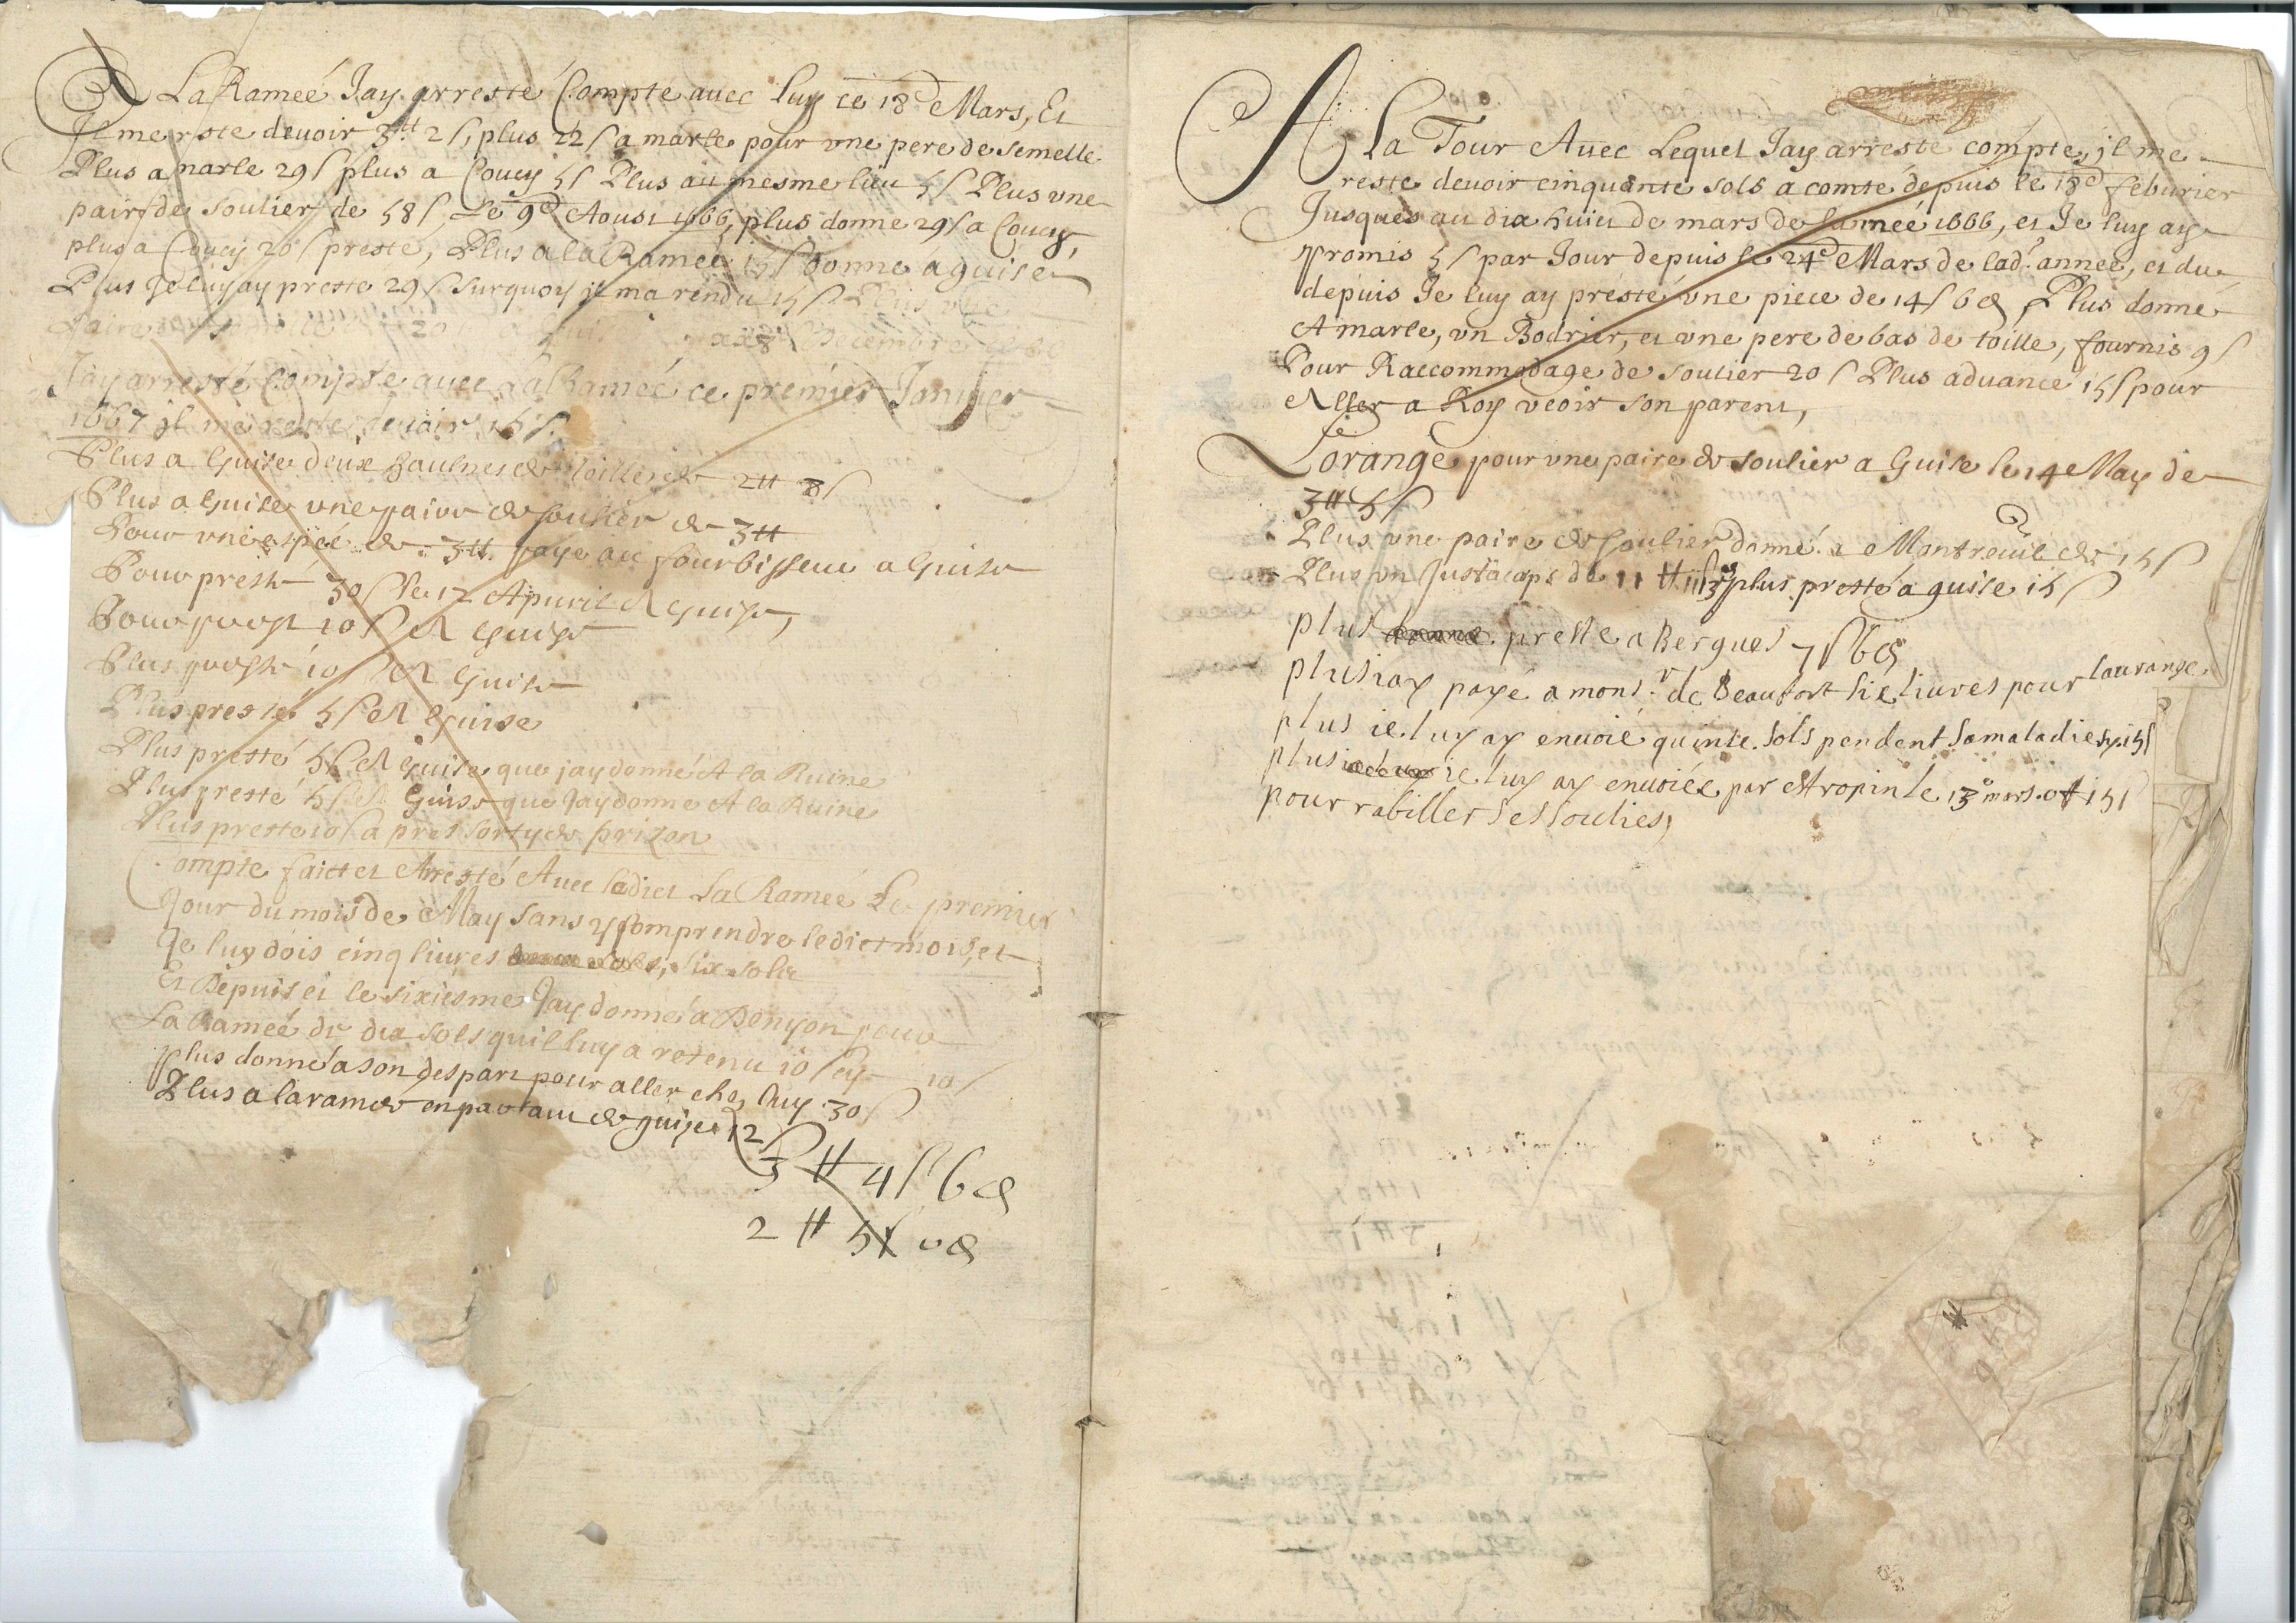 A La Rameé Jay arresté Compte auec luy ce 18d Mars, Et
Il me reste deuoir 3tt 2s, plus 22s a marle pour vne pere de semelle
Plus a marle 29s plus a Coucy 5s Plus au mesme lieu 5s Plus vne
pair de soulier de 58s Le 9d Aoust 1666, plus donne 29s a Coucy,
plus a Coucy 20s presté, Plus a la Rameé 15s donne a guise
Plus Je luy ay presté 29s surquoy il ma rendu 15s Plus vne
paire 20s Decembre
Jay arresté Compte auec la Rameé ce premier Januier
1667 il me reste deuoir 15s.
Plus a Guise deux haulnes de toille de 2tt 8s
Plus a Guise vne paire de soulier de 3tt
Pour vne espeé de 3tt payé au fourbisseur a Guise
Pour presté 30s le 12 Apuril A Guise,
Pour prest 10s A Guise
Plus presté 10s A Guise
Plus presté 5s A Guise
Plus presté 5s A Guise que jay donné A la Ruine
Plus presté 5s A Guise que Jay donne A la Ruine
Plus preste 10s apres sorty de prizon
Compte faict et Arresté Auec ledict La Rameé Le premier
Jour du mois de May sans y Comprendre ledict mois, et
Je luy dois cinq liures six sols
Et Depuis et le sixiesme Jay donné a Bonyon pour
La Rameé de dix sols quil luy a retenu 10s cy 10s
plus donné a son despart pour aller chez luy 30s
Plus a la rameé en partant de guise 12s
3tt 4s 6d
2tt 5s 0d
A La Tour Auec Lequel Jay arresté compte, il me
reste deuoir cinquante sols a comté depuis le 18d feburier
Jusques au dix huict de mars de lanneé 1666, et Je luy ay
promis 5s par Jour depuis le 24d Mars de lad. année, et du
depuis Je luy ay présté vne piece de 14s 6d Plus donné
A marle, vn Bodrier, et vne pere de bas de toille, fournis 9s
Pour Raccommodage de soulier 20s Plus aduance 15s pour
Aller a Roy veoir son parent,
Lorange pour vne paire de soulier a Guise le 14e May de
3tt 5s
Plus vne paire de soulier donné a Montreuil de 15s
Plus vn Justacorps de 11tt plus presté a guise 15s
plus preste a Bergues 7s 6d
plus iay payé a monsr de Beaufort six liures pour laurange
plus ie luy ay enuoié quinse sols pendent sa maladie cy 15s
plus ie luy ay enuoiée par Atropin le 13e mars 0tt 15s
pour rabiller ses soulies,